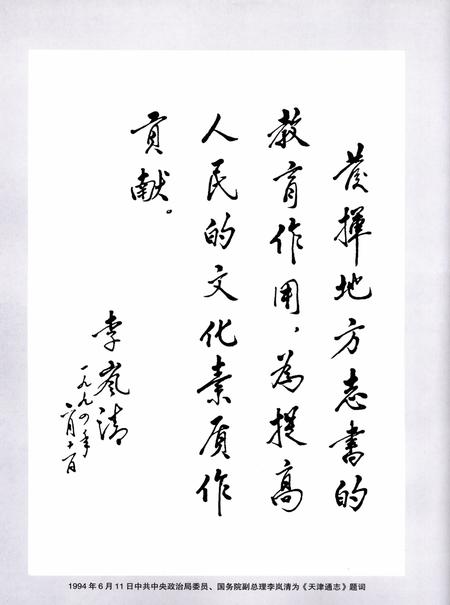 发挥地方志书的
教育作用，为提高
人民的文化素质作
贡献。
李岚清
一九九四年
六月十一日
1994年6月11日中共中央政治局委员、国务院副总理李岚清为《天津通志》题词